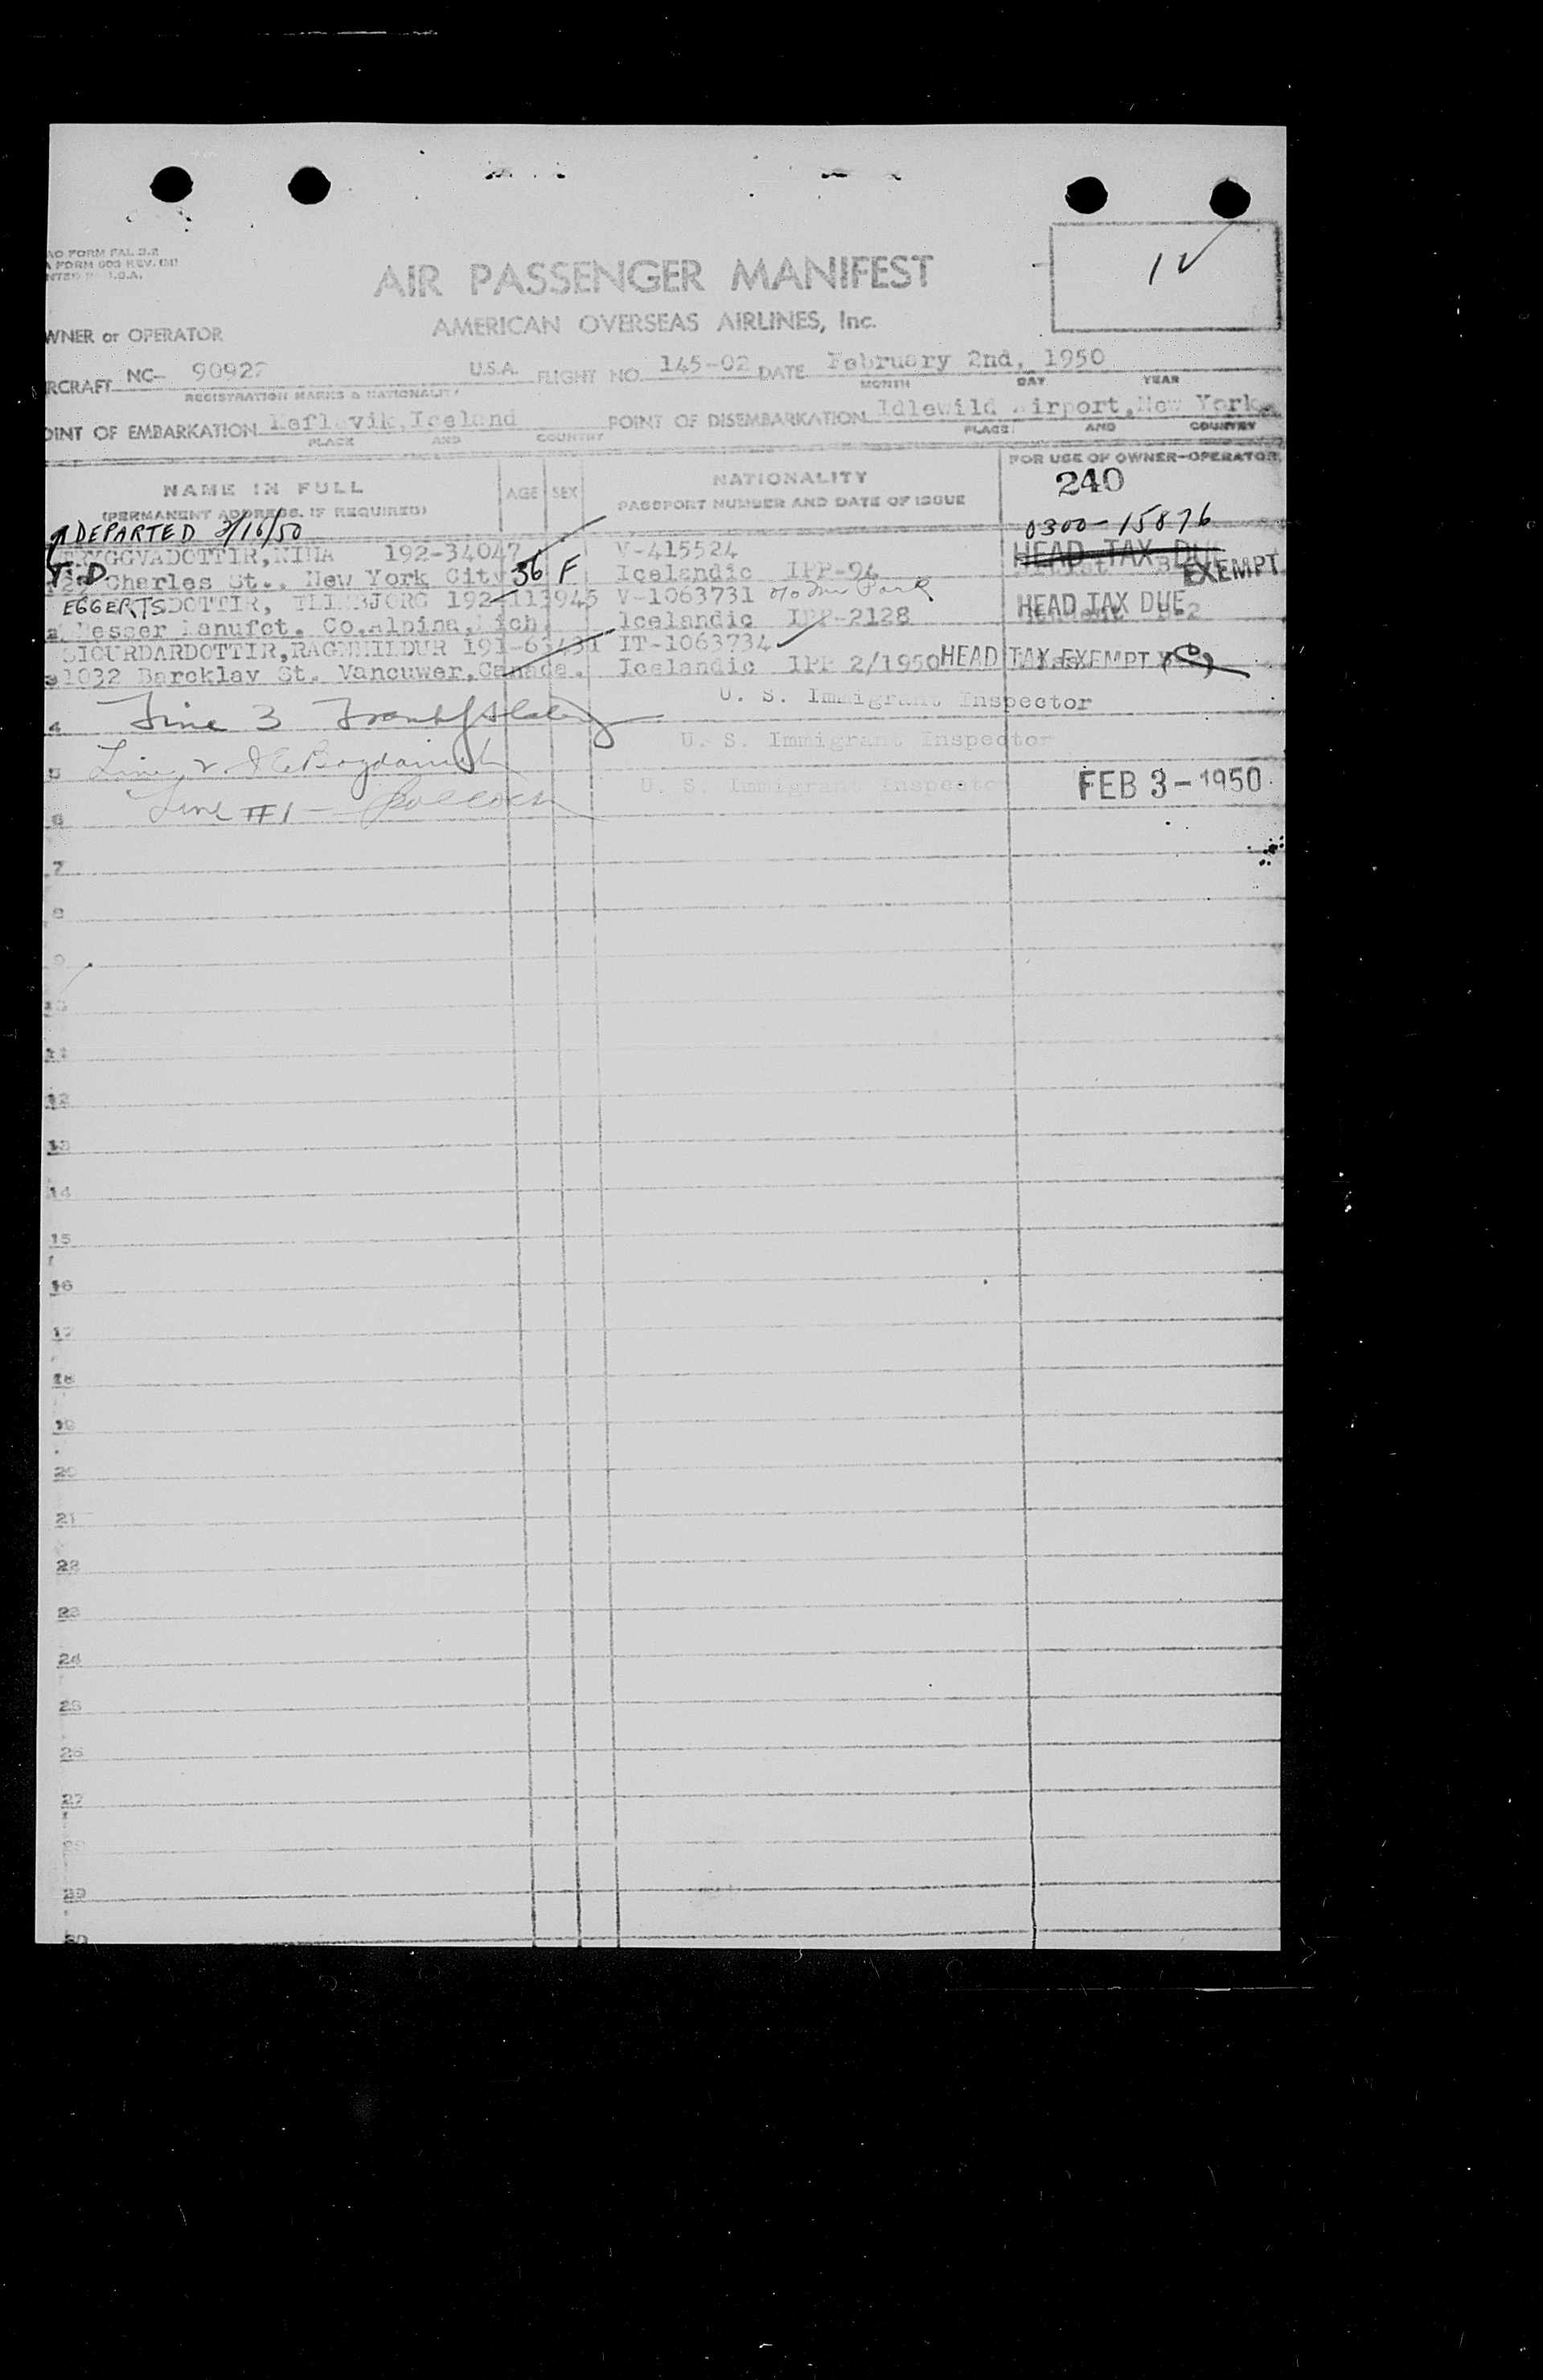 AO FORM FAL 3.2
A FORM 603 REV. (M)
NTED IN U.S.A.
1 ✓
AIR PASSENGER MANIFEST
WNER or OPERATOR
AMERICAN OVERSEAS AIRLINES, Inc.
RCRAFT NC- 90922 U.S.A. FLIGHT NO. 145-02 DATE February 2nd, 1950
REGISTRATION MARKS & NATIONALITY MONTH DAY YEAR
OINT OF EMBARKATION Keflavik, Iceland POINT OF DISEMBARKATION Idlewild Airport, New York
PLACE AND COUNTRY PLACE AND COUNTRY
FOR USE OF OWNER-OPERATOR
NAME IN FULL AGE SEX NATIONALITY 240
(PERMANENT ADDRESS, IF REQUIRED) PASSPORT NUMBER AND DATE OF ISSUE
DEPARTED 3/16/50 0300-15876
TRYGGVADOTTIR, NINA 192-34047 V-415524 HEAD TAX DUE
T-D Charles St., New York City 36 F Icelandic IPP-94 EXEMPT
EGGERTSDOTTIR, 192-113945 V-1063731
2 Besser Manufct. Co. Alpina, Mich. Icelandic IPP-2128 HEAD TAX DUE
SIGURDARDOTTIR, RAGNHILDUR IT-1063734
3 1032 Barcklay St. Vancuwer, Canada. Icelandic IPP 2/1950 HEAD TAX EXEMPT
U. S. Immigrant Inspector
4 Line 3
U. S. Immigrant Inspector
5 Line 2.
U. S. Immigrant Inspector FEB 3 - 1950
6 Line #1 -
7
8
9
10
11
12
13
14
15
16
17
18
19
20
21
22
23
24
25
26
27
28
29
30